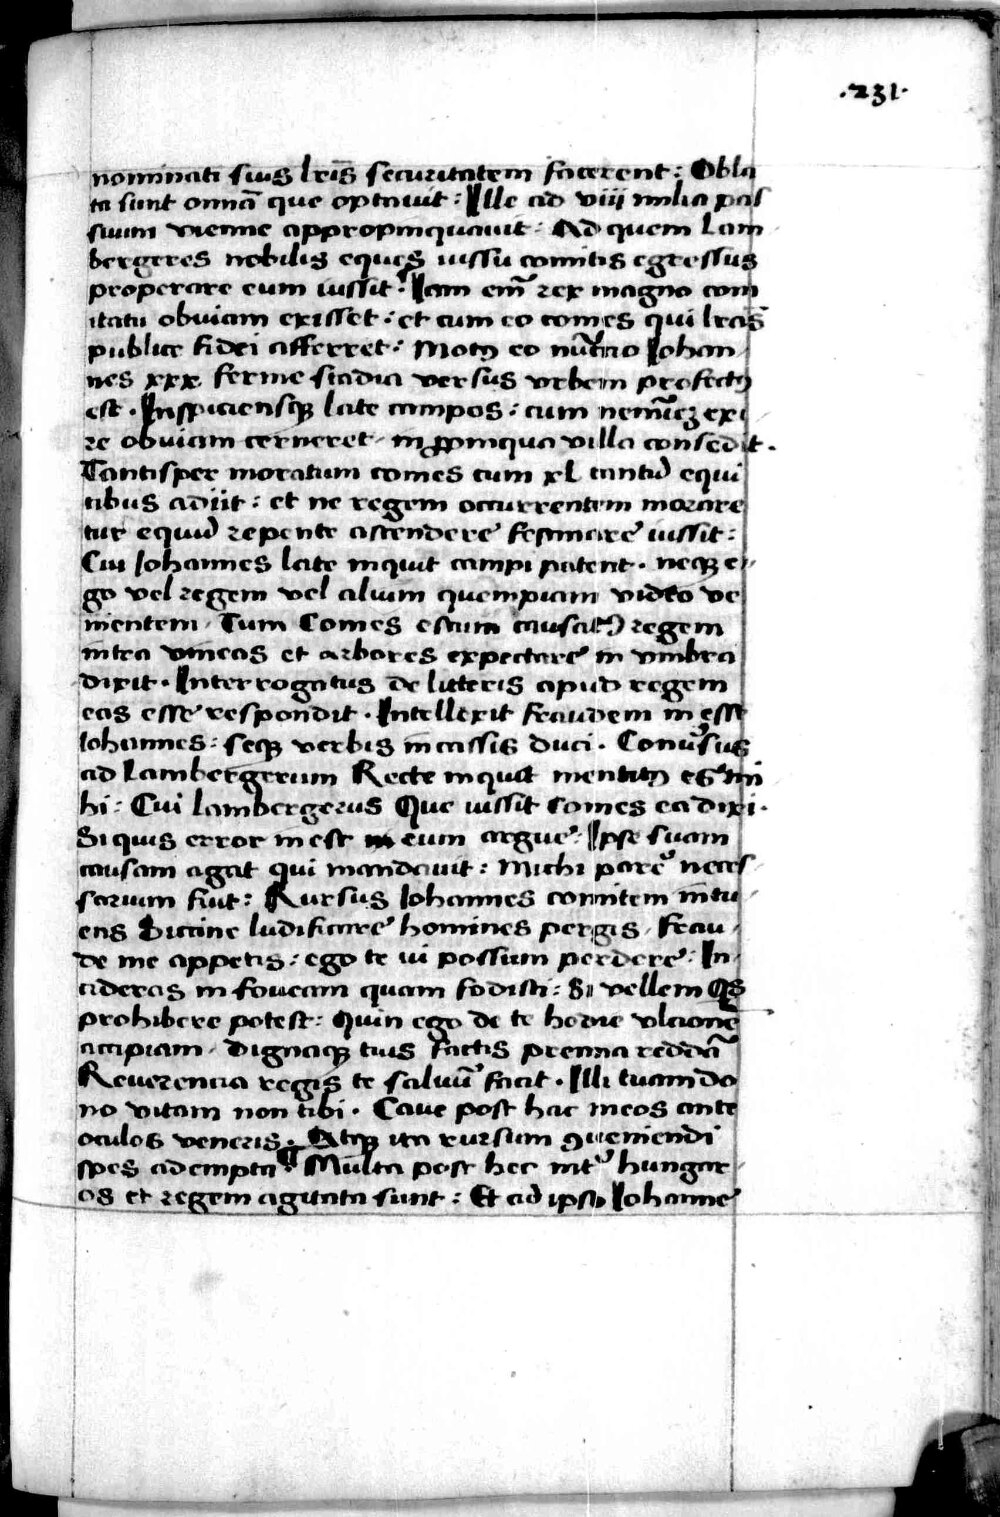 .231.
nominati suis lr̃is securitatem facerent : Obla
ta sunt omnã que optavit : Ille ad viii milia pas
suum vienne appropinquavit : Ad quem Lam
bergeres nobilis eques iussu comitis egressus
properare eum iussit : Iam em̃ rex magno com
itatu obviam exisset : et cum eo comes qui lr̃as
publice fidei afferret : Motꝰ eo nũtio Johan
nes xxx ferme stadia versus urbem profectꝰ
est . Inspiciensqꝫ late campos : cum neminẽ exi
re obviam cerneret in ꝓpinqua villa consedit .
Tantisper moratum comes cum xl tantũ equi
tibus adiit : et ne regem occurrentem morare
tur equũ repente ascendere festinare iussit :
Cui Johannes late inquit campi patent . neqꝫ e
go vel regem vel alium quempiam video ve
nientem . Tum Comes estum causatꝰ regem
intra vineas et arbores expectare in umbra
dixit . Interrogatus de litteris apud regem
eas esse respondit . Intellexit fraudem inesse
Johannes : seqꝫ verbis incassis duci . Conũsus
ad Lambergerum Recte inquit mentitꝰ es mi
hi : Cui Lambergerus Que iussit comes ea dixi .
Si quis error inest in eum argue : Ipse suam
causam agat qui mandavit : Michi parẽ neces
sarium fuit : Rursus Johannes comitem intu
ens Siccine ludificare homines pergis . Frau
de me appetis : ego te vi possum perdere : In
cideras in foveam quam fodisti : Si vellem Qs
prohibere potest : Quin ego de te hodie ulcionẽ
accipiam . dignaqꝫ tuis factis premia reddã
Reverencia regis te salvũ facit . Illi tuam do
no vitam non tibi . Cave post hac meos ante
oculos veneris . Atqꝫ ita rursum ꝯveniendi
spes adempta ¶ Multa post hec intᵉ hungar
os et regem agitata sunt : Et ad ipsũ Johannẽ